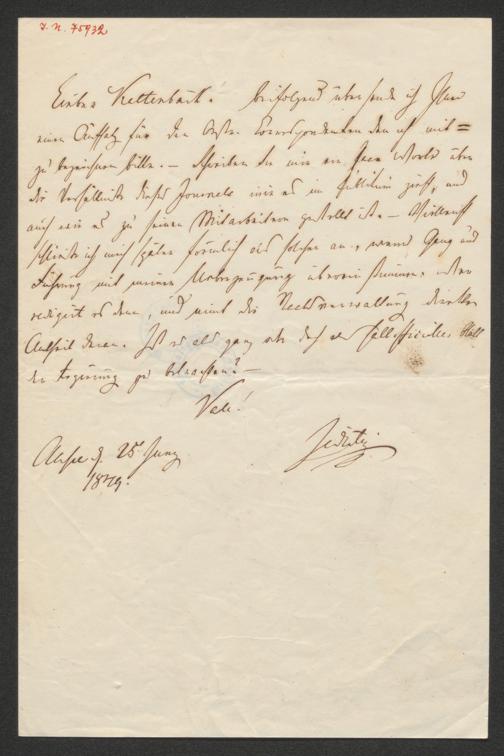 I. N. 75932
Lieber Kaltenbäck. Beifolgend übersende ich Ihnen
einen Aufsatz für den Oestr. Correspondenten den ich mit =
zu bezeichnen bitte. — Schreiben Sie mir ein Paar Worte über
die Verhältniße dieses Journals wie es im Publikum, und
auch wie es zu seinen Mitarbeitern gestellt ist. — Vielleicht
schließe ich mich später förmlich als solcher an, wenn Gang und
Führung mit meiner Ueberzeugung übereinstimmen. Wer
redigirt es denn, und nimt die Reichsverwaltung direkten
Antheil daran. Ist es als ganz oder doch als halboffizielles Blatt
der Regierung zu betrachten? —
Vale!
Zedlitz
Aussee d. 25 Juny
1849.